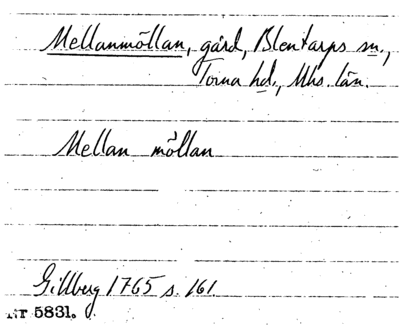 Mellanmöllan, gård, Blentarps sn.,
Torna hd., Mhs. län.
Mellan möllan
Gillberg 1765 s. 161.
Nr 5831.